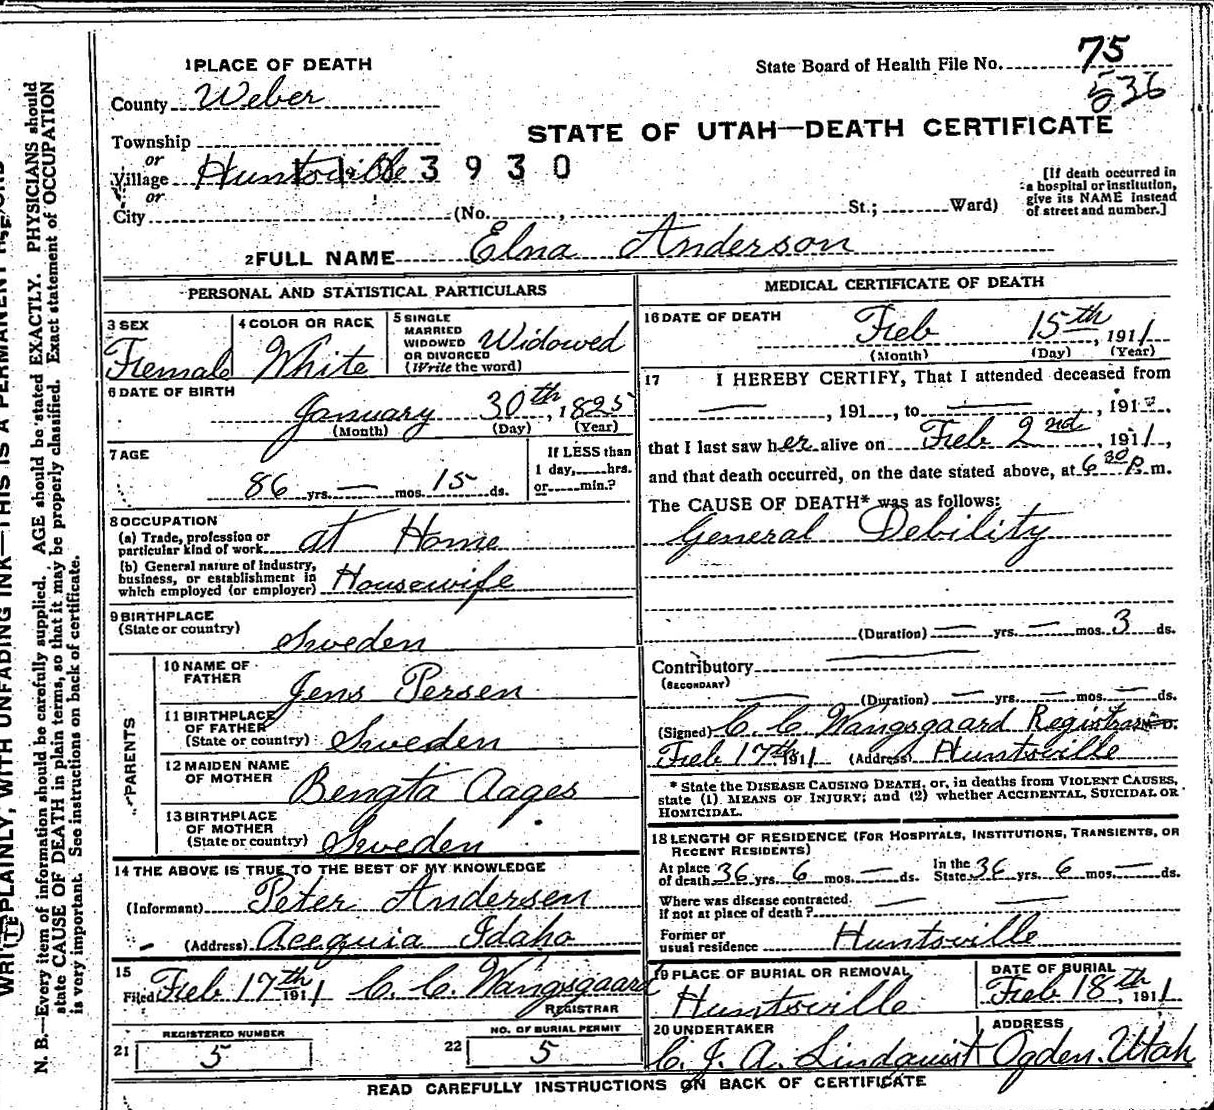 1 PLACE OF DEATH
State Board of Health File No. 75
536
County Weber
STATE OF UTAH—DEATH CERTIFICATE
Township
or
Village Huntsville 3 9 3 0
or
City (No. , St.; Ward)
[If death occurred in
a hospital or institution,
give its NAME instead
of street and number.]
2 FULL NAME Elna Anderson
PERSONAL AND STATISTICAL PARTICULARS
3 SEX
Female
4 COLOR OR RACE
White
5 SINGLE
MARRIED
WIDOWED
OR DIVORCED
(Write the word)
Widowed
6 DATE OF BIRTH
January 30th, 1825
(Month) (Day) (Year)
7 AGE
86 yrs. — mos. 15 ds.
If LESS than
1 day, hrs.
or min.?
8 OCCUPATION
(a) Trade, profession or
particular kind of work at Home
(b) General nature of industry,
business, or establishment in
which employed (or employer) Housewife
9 BIRTHPLACE
(State or country)
Sweden
PARENTS
10 NAME OF
FATHER
Jens Persen
11 BIRTHPLACE
OF FATHER
(State or country) Sweden
12 MAIDEN NAME
OF MOTHER
Bengta Aages
13 BIRTHPLACE
OF MOTHER
(State or country) Sweden
14 THE ABOVE IS TRUE TO THE BEST OF MY KNOWLEDGE
(Informant) Peter Andersen
(Address) Acequia Idaho
15
Filed Feb 17th 1911 C. C. Wangsgaard
REGISTRAR
REGISTERED NUMBER
21 5
NO. OF BURIAL PERMIT
22 5
MEDICAL CERTIFICATE OF DEATH
16 DATE OF DEATH
Feb 15th, 1911
(Month) (Day) (Year)
17 I HEREBY CERTIFY, That I attended deceased from
—, 191, to —, 191
that I last saw her alive on Feb 2nd, 1911,
and that death occurred, on the date stated above, at 6 30 P. m.
The CAUSE OF DEATH* was as follows:
General Debility
(Duration) — yrs. — mos. 3 ds.
Contributory —
(SECONDARY)
— (Duration) — yrs. — mos. — ds.
(Signed) C. C. Wangsgaard Registrar
Feb 17th 1911 (Address) Huntsville
* State the DISEASE CAUSING DEATH, or, in deaths from VIOLENT CAUSES,
state (1) MEANS OF INJURY; and (2) whether ACCIDENTAL, SUICIDAL OR
HOMICIDAL.
18 LENGTH OF RESIDENCE (FOR HOSPITALS, INSTITUTIONS, TRANSIENTS, OR
RECENT RESIDENTS)
At place
of death 36 yrs. 6 mos. — ds.
In the
State 36 yrs. 6 mos. — ds.
Where was disease contracted
if not at place of death? — —
Former or
usual residence Huntsville
19 PLACE OF BURIAL OR REMOVAL
Huntsville
DATE OF BURIAL
Feb 18th, 1911
20 UNDERTAKER
C. J. A. Lindquist
ADDRESS
Ogden. Utah
READ CAREFULLY INSTRUCTIONS ON BACK OF CERTIFICATE
WRITE PLAINLY, WITH UNFADING INK—THIS IS A PERMANENT RECORD
N. B.—Every item of information should be carefully supplied. AGE should be stated EXACTLY. PHYSICIANS should
state CAUSE OF DEATH in plain terms, so that it may be properly classified. Exact statement of OCCUPATION
is very important. See instructions on back of certificate.